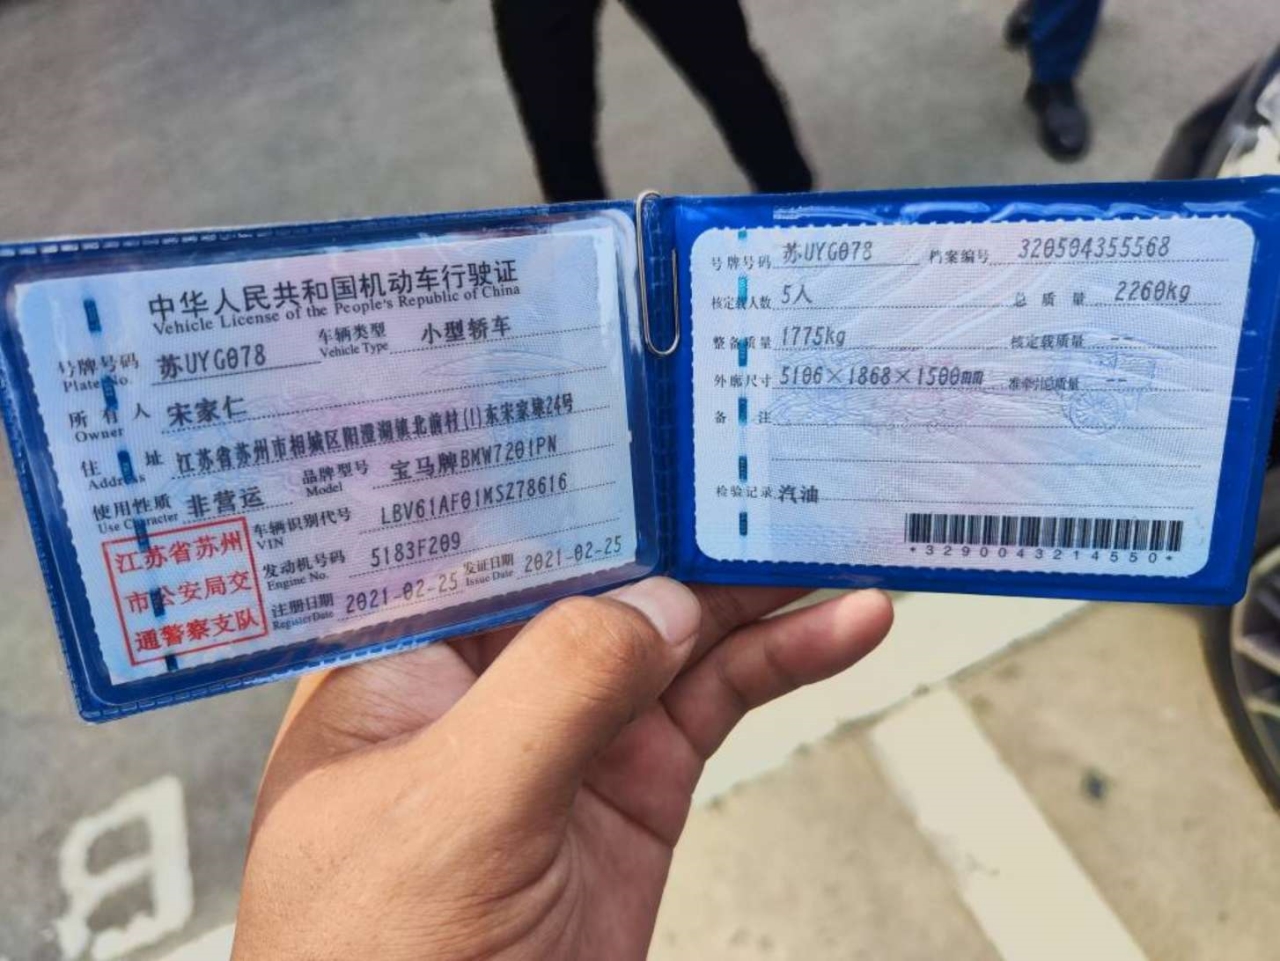 中华人民共和国机动车行驶证
Vehicle License of the People's Republic of China
号牌号码 苏UYG078 车辆类型 小型轿车
Plate No. Vehicle Type
所有人 宋家仁
Owner
住址 江苏省苏州市相城区阳澄湖镇北前村(1)东宋家浜24号
Address
使用性质 非营运 品牌型号 宝马牌BMW7201PN
Use Character Model
江苏省苏州
市公安局交
通警察支队
车辆识别代号 LBV61AF01MS278616
VIN
发动机号码 5183F209
Engine No.
注册日期 2021-02-25 发证日期 2021-02-25
Register Date Issue Date
号牌号码 苏UYG078 档案编号 320504355568
核定载人数 5人 总质量 2260kg
整备质量 1775kg 核定载质量 --
外廓尺寸 5106×1868×1500mm 准牵引总质量 --
备注
检验记录 汽油
*3290043214550*
B